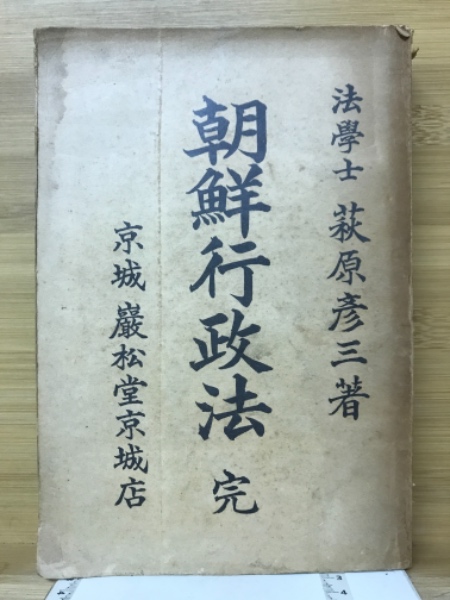 法學士 萩原彥三著
朝鮮行政法 完
京城 巖松堂京城店
3
4